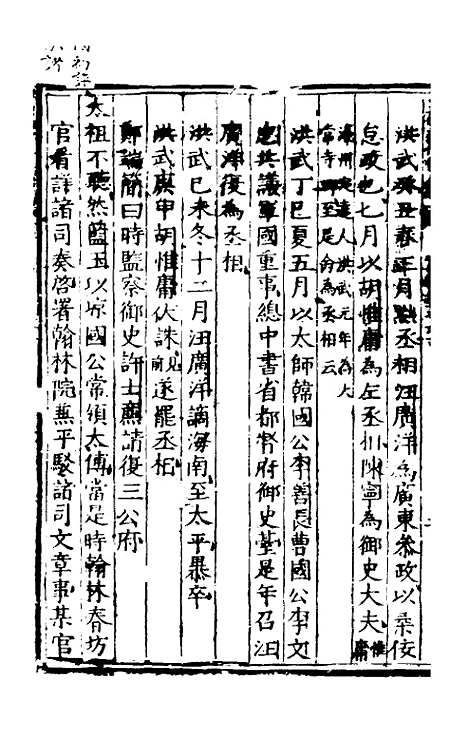 洪武癸丑春正月黜丞相汪廣洋為廣東叅政以柔佞
怠政也七月以胡惟庸為左丞相陳寧為御史大夫惟庸
濠州定遠人洪武元年為太常寺卿至是命為丞相云
洪武丁巳夏五月以太師韓國公李善長曹國公李文
忠共議軍國重事總中書省都督府御史臺是年召汪
廣洋復為丞相
洪武己未冬十二月汪廣洋謫海南至太平暴卒
洪武庚申胡惟庸伏誅見前遂罷丞相
鄭端簡曰時監察御史許士廉請復三公府
太祖不聽然藍玉以凉國公常領太傅當是時翰林春坊
官看詳諸司奏啓署翰林院兼平駁諸司文章事某官